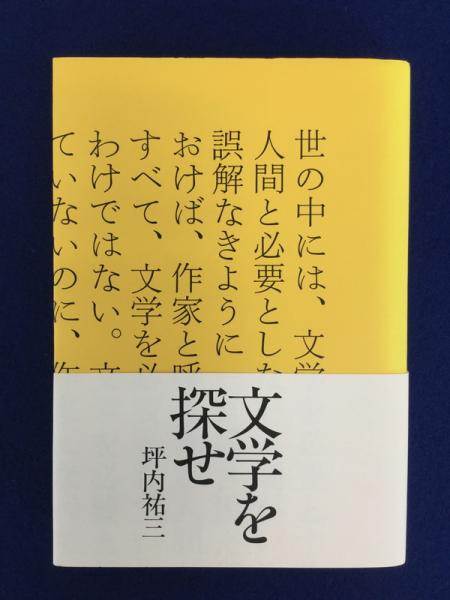 世の中には、文学
人間と必要としな
誤解なきように
おけば、作家と呼
すべて、文学を必
わけではない。文
ていないのに、作
文学を
探せ
坪内祐三